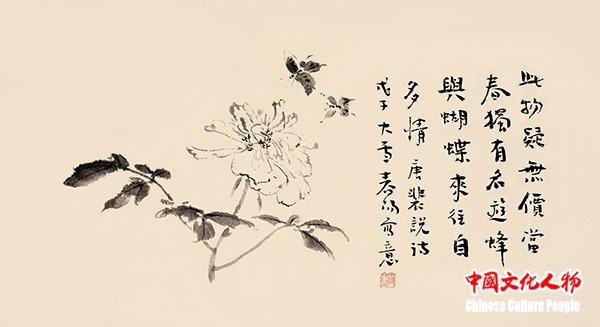 此物疑無價當
春獨有名遊蜂
與蝴蝶來往自
多情 唐裴說詩
戊子大雪春 寫意
中國文化人物
Chinese Culture People